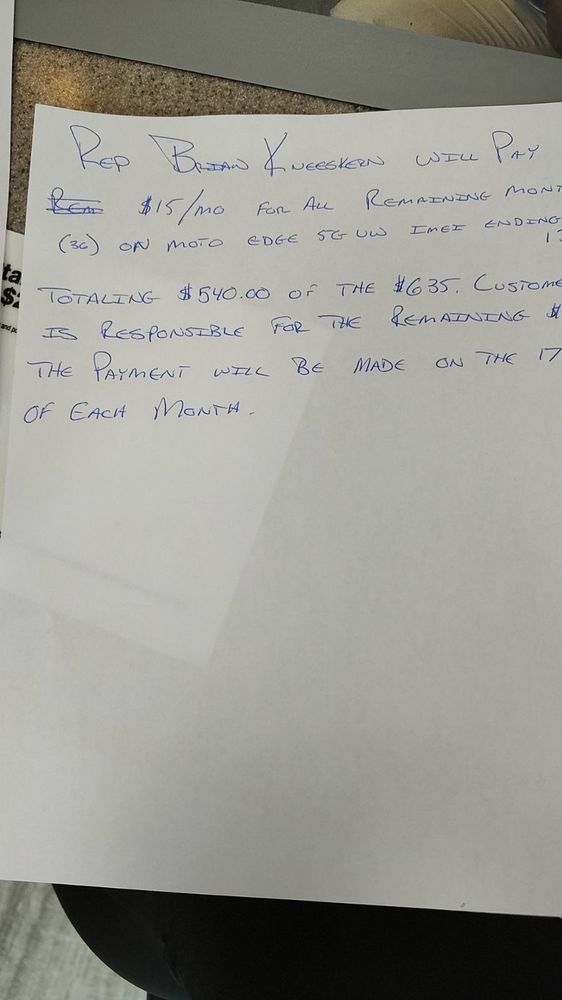 REP BRIAN KNEESKERN WILL PAY
REM $15/MO FOR ALL REMAINING MONT
(36) ON MOTO EDGE 5G UW IMEI ENDING
13
TOTALING $540.00 OF THE $635. CUSTOME
IS RESPONSIBLE FOR THE REMAINING $
THE PAYMENT WILL BE MADE ON THE 17
OF EACH MONTH.